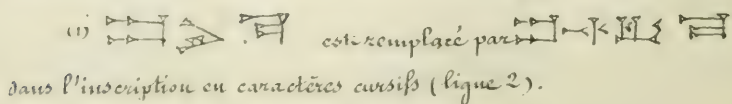 (1) est remplacé par
dans l'inscription en caractères cursifs (ligne 2).